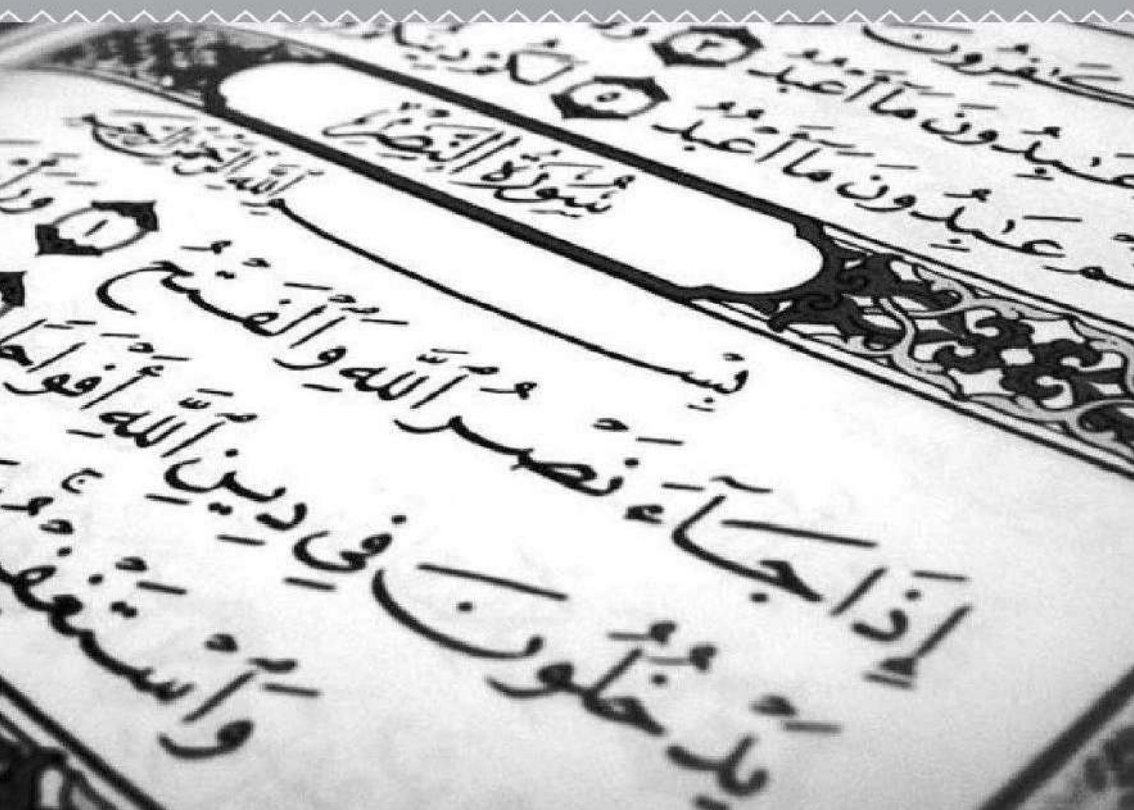 ٱلْكَـٰفِرُونَ
عَـٰبِدُونَ مَآ أَعْبُدُ ٣
عَـٰبِدُونَ مَآ أَعْبُدُ ٥ لَكُمْ دِينُكُمْ
سُورَةُ النَّصْرِ
بِسْمِ ٱللَّهِ ٱلرَّحْمَـٰنِ ٱلرَّحِيمِ
إِذَا جَآءَ نَصْرُ ٱللَّهِ وَٱلْفَتْحُ ١
يَدْخُلُونَ فِي دِينِ ٱللَّهِ أَفْوَاجًا
وَٱسْتَغْفِرْهُ